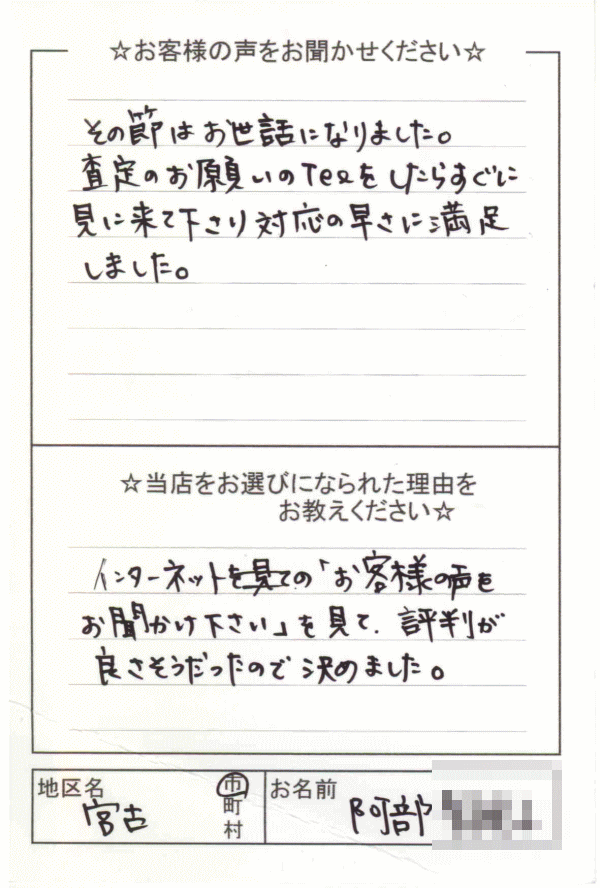 ☆お客様の声をお聞かせください☆
その節はお世話になりました。
査定のお願いのTELをしたらすぐに
見に来て下さり対応の早さに満足
しました。
☆当店をお選びになられた理由を
お教えください☆
インターネットを見ての「お客様の声を
お聞かけ下さい」を見て、評判が
良さそうだったので決めました。
地区名
宮古
市
町
村
お名前
阿部